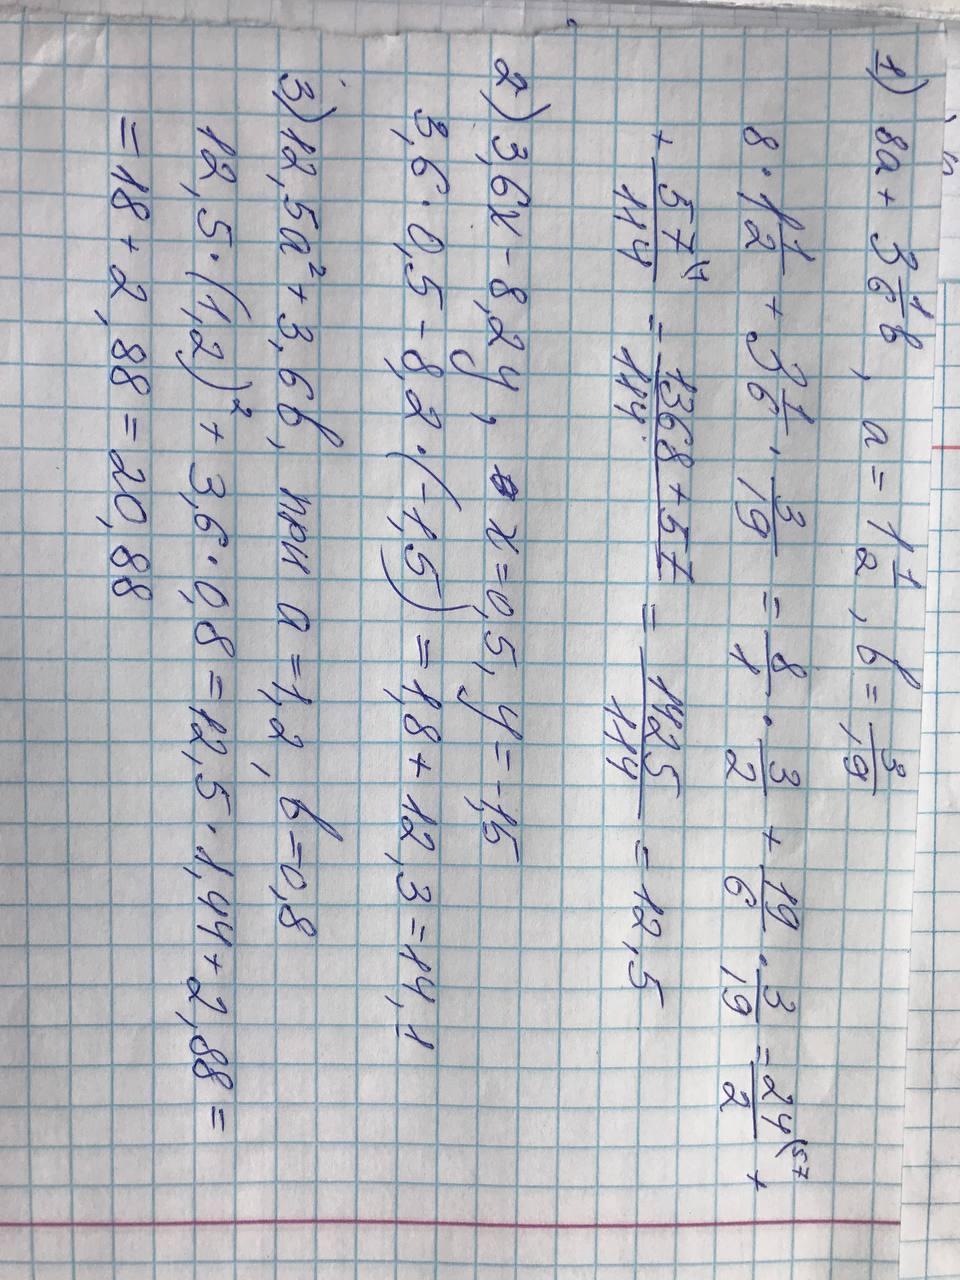 1) 8a + 3 1/6 b, a = 1 1/2, b = 3/19
8 · 1 1/2 + 3 1/6 · 3/19 = 8/1 · 3/2 + 19/6 · 3/19 = 24/2 (57 +
+ 57/114 (1 = 1368 + 57/114 = 1425/114 = 12,5
2) 3,6x - 8,2y, x = 0,5, y = -1,5
3,6 · 0,5 - 8,2 · (-1,5) = 1,8 + 12,3 = 14,1
3) 12,5a² + 3,6b, при a = 1,2, b = 0,8
12,5 · (1,2)² + 3,6 · 0,8 = 12,5 · 1,44 + 2,88 =
= 18 + 2,88 = 20,88